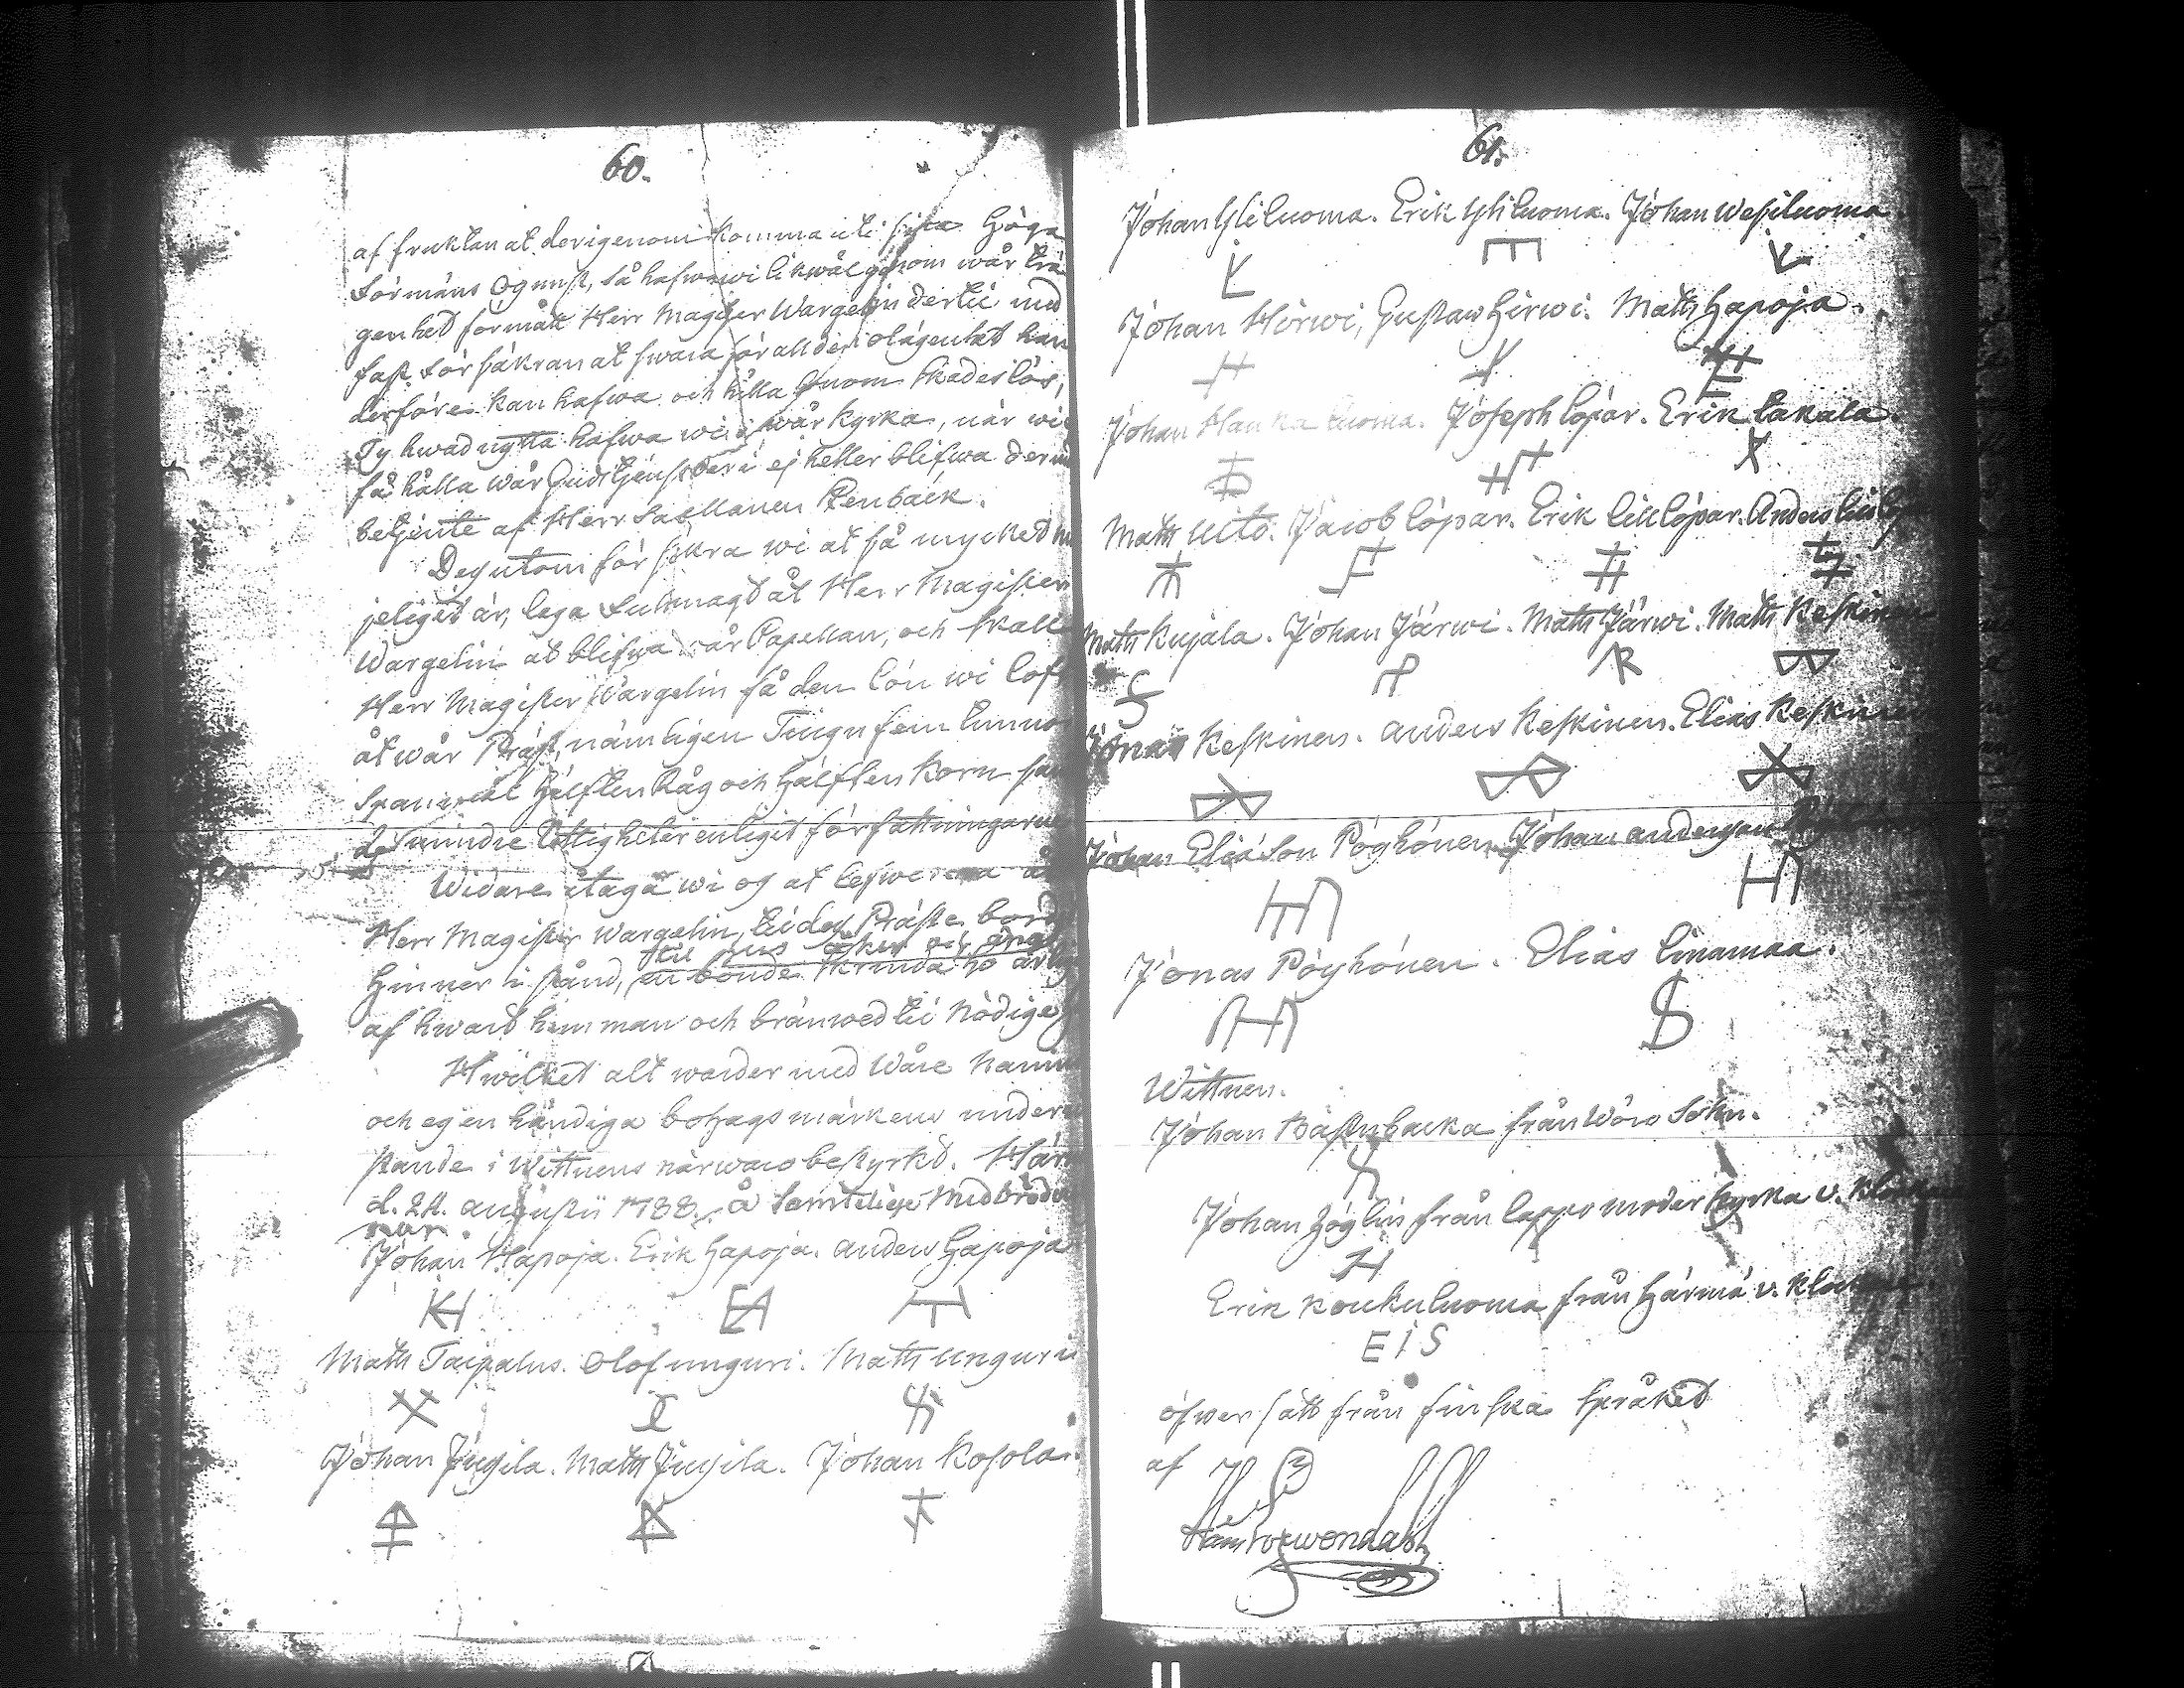 60.
af fruktan at derigenom komma uti sina Höga
Förmäns Ogunst, så hafwe wi likwäl genom wår trä
genhet förmått Herr Magister Wargelin dertil med
fast försäkran at swara för all den olägenhet han
derföre kan hafwa och hålla honom skadeslös,
Ty hwad nytta hafwa wi af wår kyrka, när wi
få hålla wår Gudstjenst deri ej heller blifwa derm
betjente af Herr Sacellanen Stenbäck.
Desutom försäkra wi at så mycket m
jeligit är, laga fullmagt åt Herr Magister
Wargelin at blifwa wår Capellan, och skall
Herr Magister Wargelin få den lön wi lof
åt wår Präst, nämligen Tiugu fem tunnor
Spanmål hälften Råg och hälften Korn samt
de mindre rättigheter enligit författningarne
Widare åtaga wi os at leswerera åt
Herr Magister Wargelin, til des Präste bord
til hus åker och äng
hinner i stånd, en bonde skrinda hö år
af hwart hemman och bränwed til nödige
Hwilket alt warder med wåre namn
och egen händiga bohags märkens under
stånde i Wittnens närwaro bestyrkt. Här
d. 24. augustii 1788. å samtelige Medbröders
nar
Johan Hapoja. Erik Hapoja. Anders Hapoja
KH EA
Matts Taipalus. Olof unguri. Matts unguri
Johan Jusila. Matts Jusila. Johan Kosola.
61.
Johan Yliluoma. Erik Yliluoma. Johan Wesiluoma
Johan Hirwi, Gustaw Hirwi. Matts Hapoja.
Johan Hankaluoma. Joseph Löpar. Erik Lakala.
Matts Uito. Jacob Löpar. Erik Lill Löpar. Anders
Matts Kujala. Johan Järwi. Matts Järwi. Matts Keskinen
Jonas Keskinen. Anders Keskinen. Elias Keskinen
Johan Eliason Pöyhönen. Johan Anderson
Jonas Pöyhönen. Elias Linamaa.
Wittnen.
Johan Bästubacka från Wörå Sokn.
Johan Höglin från Lappo moder kyrka v. Klockare
Erik Koukuluoma från Härmä v. Klockare
EIS
öfwersatt från finska språket
af